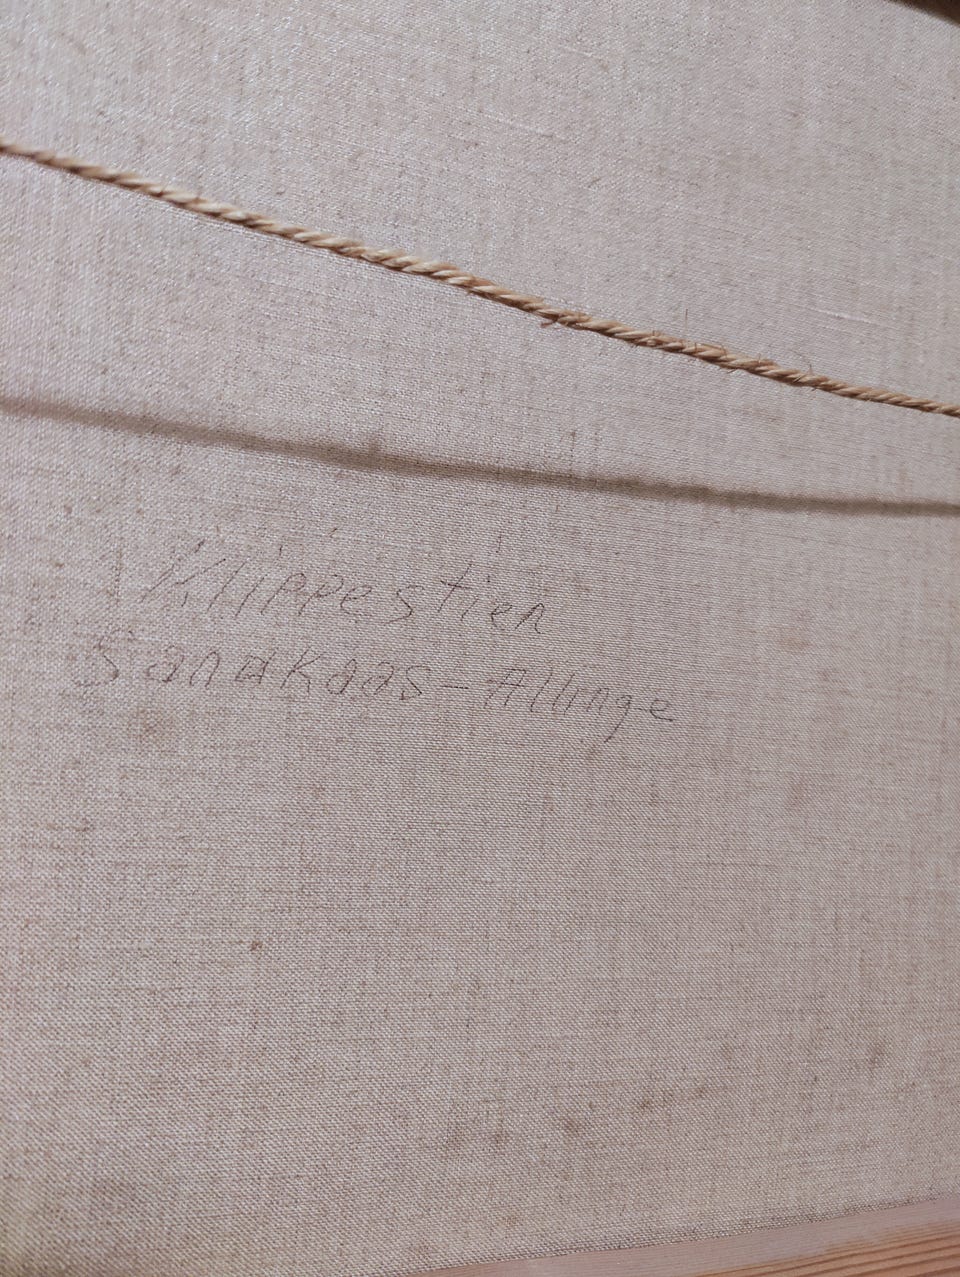 Klippestien
Sandkaas - Allinge